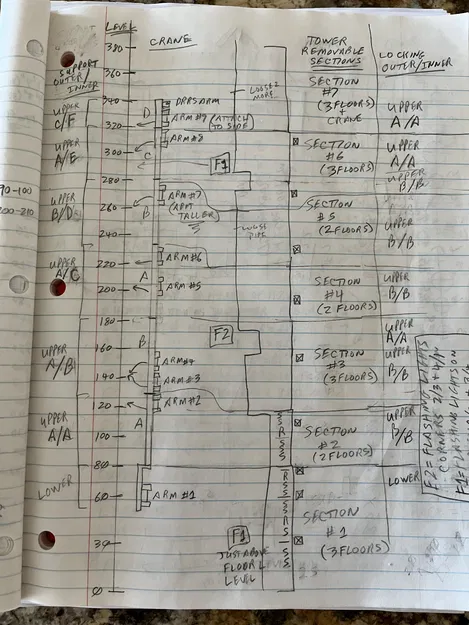 LEVEL
CRANE
TOWER
REMOVABLE
SECTIONS
LOCKING
OUTER/INNER
SUPPORT
OUTER/
INNER
380
360
340
320
300
280
260
240
220
200
180
160
140
120
100
80
60
30
0
UPPER
C/F
UPPER
A/E
UPPER
B/D
UPPER
A/C
UPPER
A/B
UPPER
A/A
LOWER
90-100
200-210
D
C
B
A
B
A
ARM #9 (ATTACH
TO SIDE)
ARM #8
ARM #7
TALLER)
ARM #6
ARM #5
ARM #4
ARM #3
ARM #2
ARM #1
LOOSE
PIPE
F1
F2
F1
JUST ABOVE
FLOOR LEVEL
LEVEL
SECTION
#7
(3 FLOORS)
+
CRANE
SECTION
#6
(3 FLOORS)
SECTION
#5
(2 FLOORS)
SECTION
#4
(2 FLOORS)
SECTION
#3
(3 FLOORS)
SECTION
#2
(2 FLOORS)
SECTION
#1
(3 FLOORS)
UPPER
A/A
UPPER
A/A
UPPER
B/B
UPPER
B/B
UPPER
B/B
UPPER
A/A
UPPER
B/B
UPPER
B/B
LOWER
F2 = FLASHING LIGHTS
CORNERS 2/3 + 4/1
F1 = FLASHING LIGHTS ON